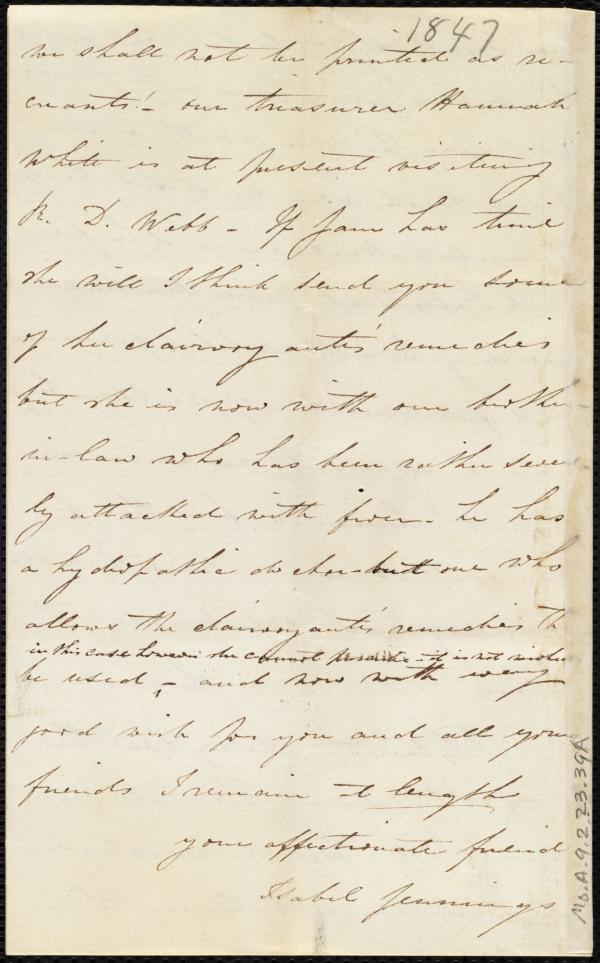 1847
we shall not be printed as re-
creants! - our treasurer Hannah
White is at present visiting
R. D. Webb - If Jane has time
she will I think send you some
of her clairvoyante's remedies
but she is now with our brother-
in-law who has been rather seve
ly attacked with fever - he has
a hydropathic doctor - but one who
allows the clairvoyante's remedies to
in this case however she cannot - it is not wished
be used, - and now with every
good wish for you and all your
friends I remain at length
your affectionate friend
Isabel Jennings
Ms.A.9.2.23.39A